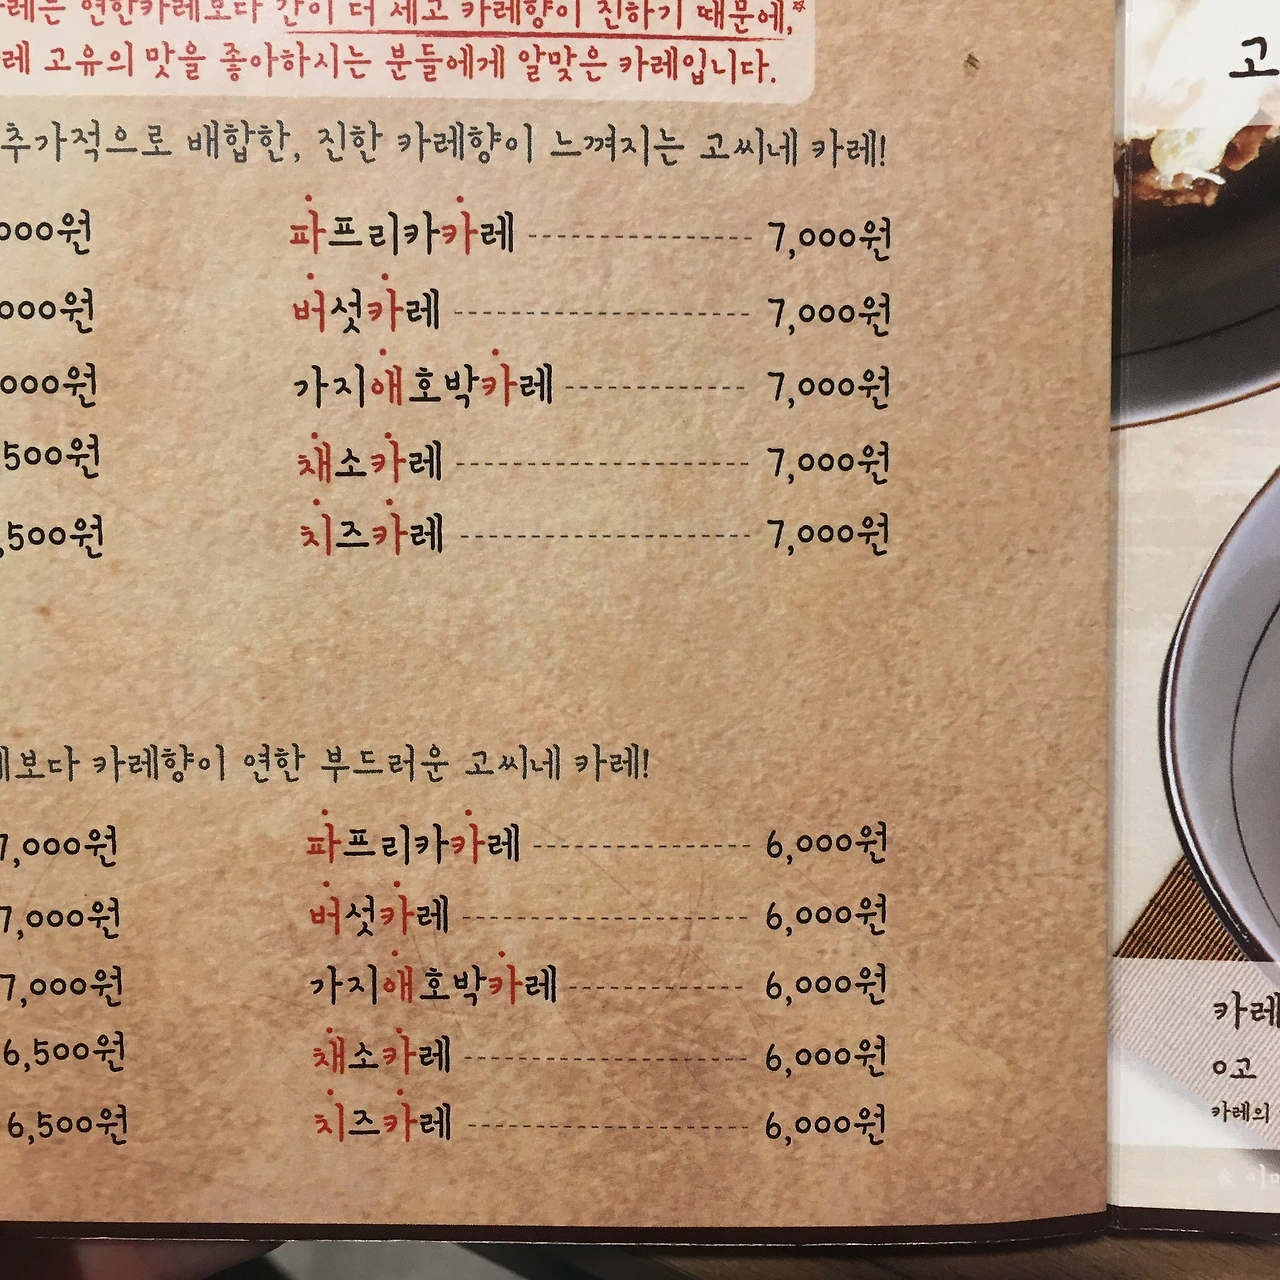 레는 연한카레보다 간이 더 세고 카레향이 진하기 때문에,
레 고유의 맛을 좋아하시는 분들에게 알맞은 카레입니다.
추가적으로 배합한, 진한 카레향이 느껴지는 고씨네 카레!
000원 파프리카카레 7,000원
000원 버섯카레 7,000원
000원 가지애호박카레 7,000원
500원 채소카레 7,000원
,500원 치즈카레 7,000원
보다 카레향이 연한 부드러운 고씨네 카레!
7,000원 파프리카카레 6,000원
7,000원 버섯카레 6,000원
7,000원 가지애호박카레 6,000원
6,500원 채소카레 6,000원
6,500원 치즈카레 6,000원
고
카레
고
카레의